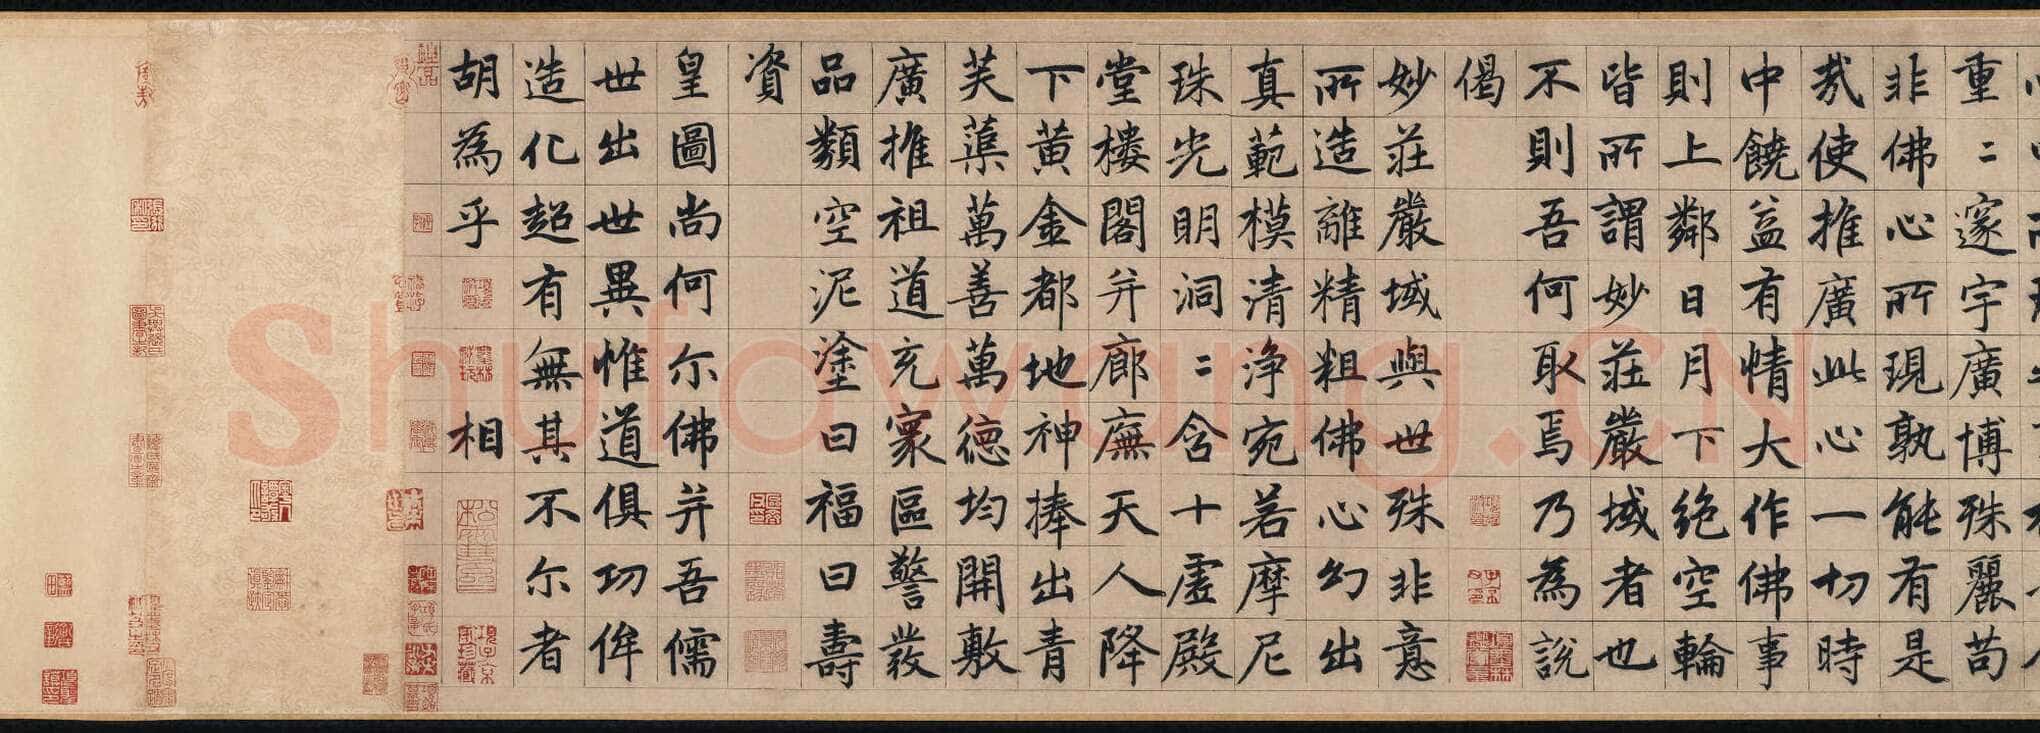 重〻邃宇廣博殊麗苟
非佛心所現孰能有是
哉使推廣此心一切時
中饒益有情大作佛事
則上鄰日月下絶空輪
皆所謂妙莊嚴域者也
不則吾何取焉乃為說
偈
妙莊嚴域與世殊非意
所造離精粗佛心幻出
真範模清淨宛若摩尼
珠光明洞〻含十虛殿
堂樓閣并廊廡天人降
下黃金都地神捧出青
芙蕖萬善萬德均開敷
廣推祖道充寰區警發
品類空泥塗曰福曰壽
資
皇圖尚何尒佛并吾儒
世出世異惟道俱功侔
造化超有無其不尒者
胡為乎相
Shufawang.CN